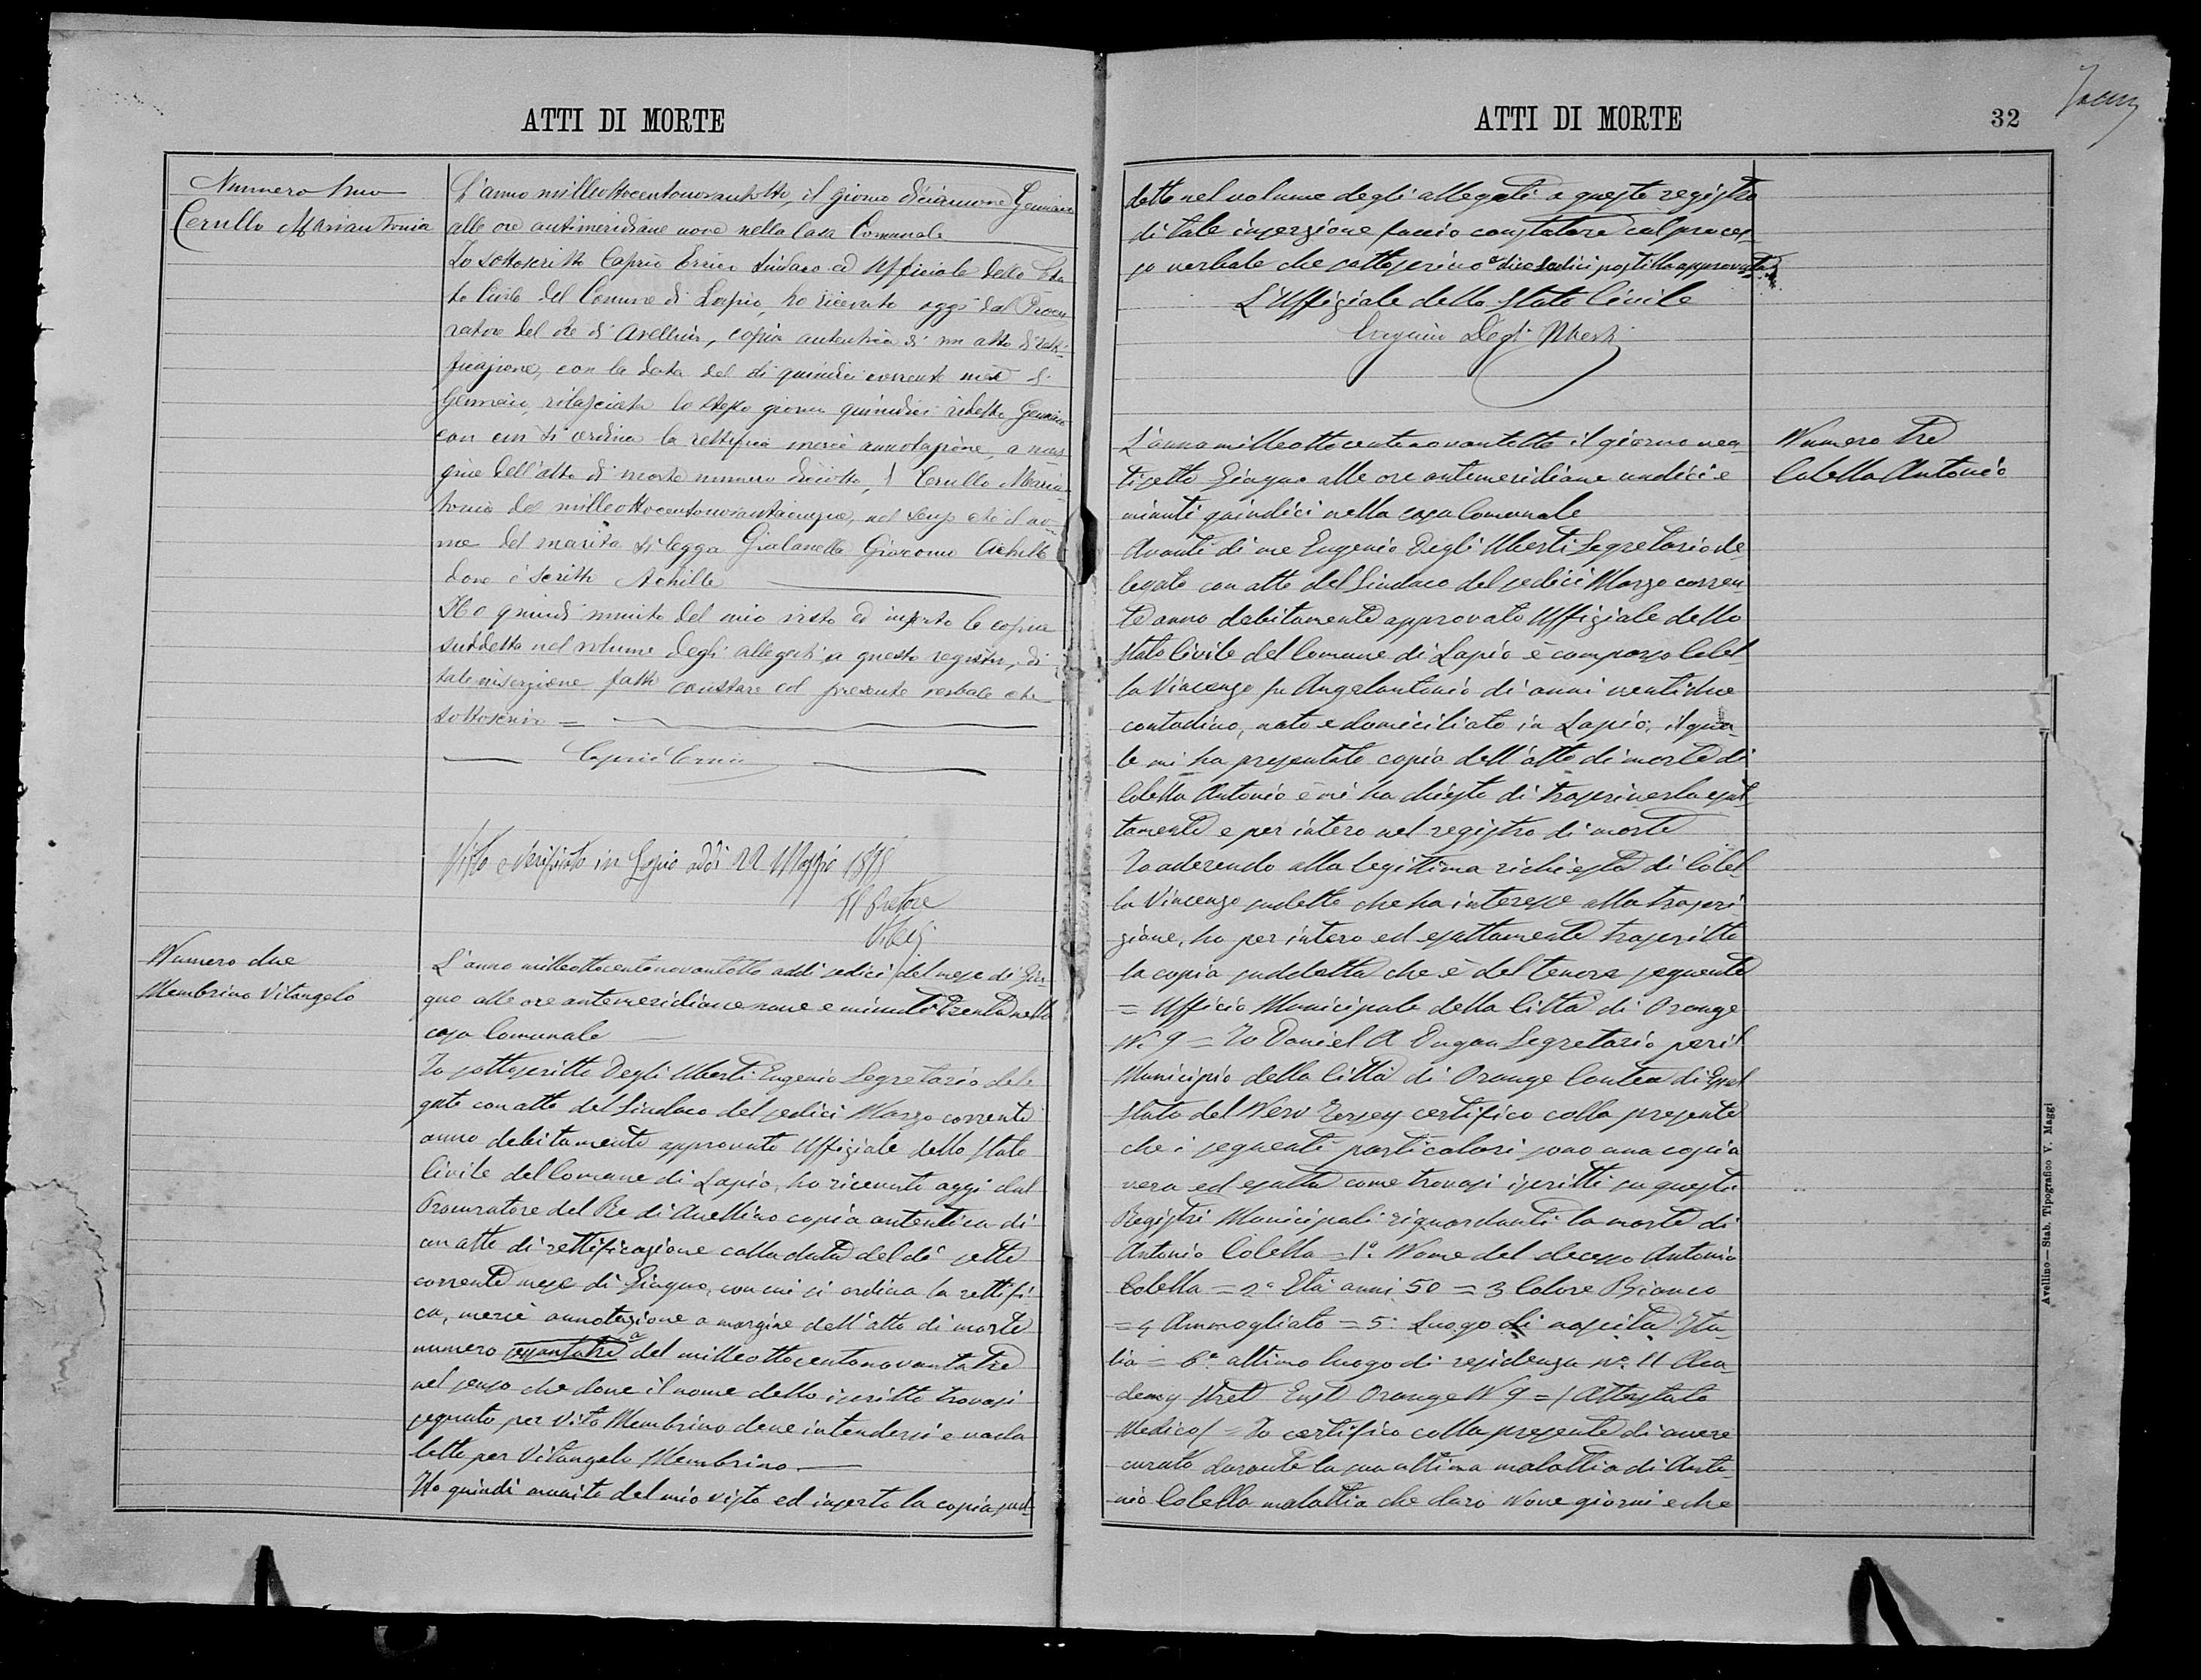 ATTI DI MORTE
Numero Uno
Cerullo Mariantonia
L'anno milleottocentonovantotto, il giorno diciannove Gennaio
alle ore antimeridiane nove nella Casa Comunale
Io sottoscritto Caprio Errico Sindaco ed Ufficiale dello Sta-
to Civile del Comune di Lapio, ho ricevuto oggi dal Procu-
ratore del Re di Avellino, copia autentica di un atto di retti-
ficazione, con la data del di quindici corrente mese di
Gennaio, rilasciata lo stesso giorno quindici ridetto Gennaio
con cui si ordina la rettifica mercè annotazione, a mar-
gine dell'atto di morte numero diciotto, di Cerullo Marian-
tonia del milleottocentonovantacinque, nel senso che il no-
me del marito si legga Gialanella Giacomo Achille
dove è scritto Achille
Ho quindi munito del mio visto ed inserto la copia
suddetta nel volume degli allegati a questo registro, di
tale inserzione fatto constare col presente verbale che
sottoscrivo =
Caprio Errico
Visto e verificato in Lapio addì 22 Maggio 1898
Il Pretore
Numero due
Membrino Vitangelo
L'anno milleottocentonovantotto addì sedici del mese di Giu-
gno alle ore antemeridiane nove e minuti trenta nella
casa Comunale
Io sottoscritto Degli Uberti Eugenio Segretario dele
gato con atto del Sindaco del sedici Marzo corrente
anno debitamente approvato Uffiziale dello Stato
Civile del Comune di Lapio, ho ricevuto oggi dal
Procuratore del Re di Avellino copia autentica di
un atto di rettificazione colla data del dì sette
corrente mese di Giugno, con cui si ordina la rettifi
ca, mercè annotazione a margine dell'atto di morte
numero sessantatre a del milleottocentonovantatre
nel senso che dove il nome dello iscritto trovasi
segnato per Vito Membrino deve intendersi e vada
letto per Vitangelo Membrino
Ho quindi munito del mio visto ed inserto la copia sud-
ATTI DI MORTE
32
detta nel volume degli allegati a questo registro
di tale inserzione faccio constatare col proces-
so verbale che sottoscrivo a dice sedici postilla approvata
L'Uffiziale dello Stato Civile
Eugenio Degli Uberti
Numero tre
Colella Antonio
L'anno milleottocentonovantotto il giorno ven-
tisette Giugno alle ore antemeridiane undici e
minuti quindici nella casa Comunale
Avanti di me Eugenio Degli Uberti Segretario de
legato con atto del Sindaco del sedici Marzo corren-
te anno debitamente approvato Uffiziale dello
Stato Civile del Comune di Lapio è comparso Colel-
la Vincenzo fu Angelantonio di anni ventidue
contadino, nato e domiciliato in Lapio, il qua-
le mi ha presentato copia dell'atto di morte di
Colella Antonio e mi ha chiesto di trascriverla esat-
tamente e per intero nel registro di morte
Io aderendo alla legittima richiesta di Colel-
la Vincenzo sudetto che ha interesse alla trascri-
zione, ho per intero ed esattamente trascritto
la copia suddetta che è del tenore seguente
= Ufficio Municipale della Città di Orange
N. 9 = Io Daniel A Dugan Segretario per il
Municipio della Città di Orange Contea di Essex
Stato del New Jersey certifico colla presente
che i seguenti particolari sono una copia
vera ed esatta come trovasi iscritti su questi
Registri Municipali riguardanti la morte di
Antonio Colella = 1° Nome del decesso Antonio
Colella = 2° Età anni 50 = 3 Colore Bianco
= 4 Ammogliato = 5: Luogo di nascita Ita-
lia = 6° ultimo luogo di residenza N° 11 Aca
demy Street East Orange N 9 = / Attestato
Medico / = Io certifico colla presente di avere
curato durante la sua ultima malattia di Anto-
nio Colella malattia che durò Nove giorni e che
Avellino—Stab. Tipografico V. Maggi